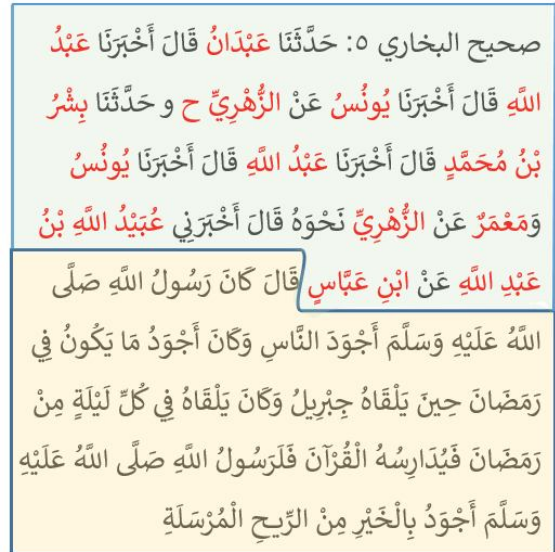 صحيح البخاري ٥: حَدَّثَنَا عَبْدَانُ قَالَ أَخْبَرَنَا عَبْدُ
اللَّهِ قَالَ أَخْبَرَنَا يُونُسُ عَنْ الزُّهْرِيِّ ح و حَدَّثَنَا بِشْرُ
بْنُ مُحَمَّدٍ قَالَ أَخْبَرَنَا عَبْدُ اللَّهِ قَالَ أَخْبَرَنَا يُونُسُ
وَمَعْمَرٌ عَنْ الزُّهْرِيِّ نَحْوَهُ قَالَ أَخْبَرَنِي عُبَيْدُ اللَّهِ بْنُ
عَبْدِ اللَّهِ عَنْ ابْنِ عَبَّاسٍ قَالَ كَانَ رَسُولُ اللَّهِ صَلَّى
اللَّهُ عَلَيْهِ وَسَلَّمَ أَجْوَدَ النَّاسِ وَكَانَ أَجْوَدُ مَا يَكُونُ فِي
رَمَضَانَ حِينَ يَلْقَاهُ جِبْرِيلُ وَكَانَ يَلْقَاهُ فِي كُلِّ لَيْلَةٍ مِنْ
رَمَضَانَ فَيُدَارِسُهُ الْقُرْآنَ فَلَرَسُولُ اللَّهِ صَلَّى اللَّهُ عَلَيْهِ
وَسَلَّمَ أَجْوَدُ بِالْخَيْرِ مِنْ الرِّيحِ الْمُرْسَلَةِ